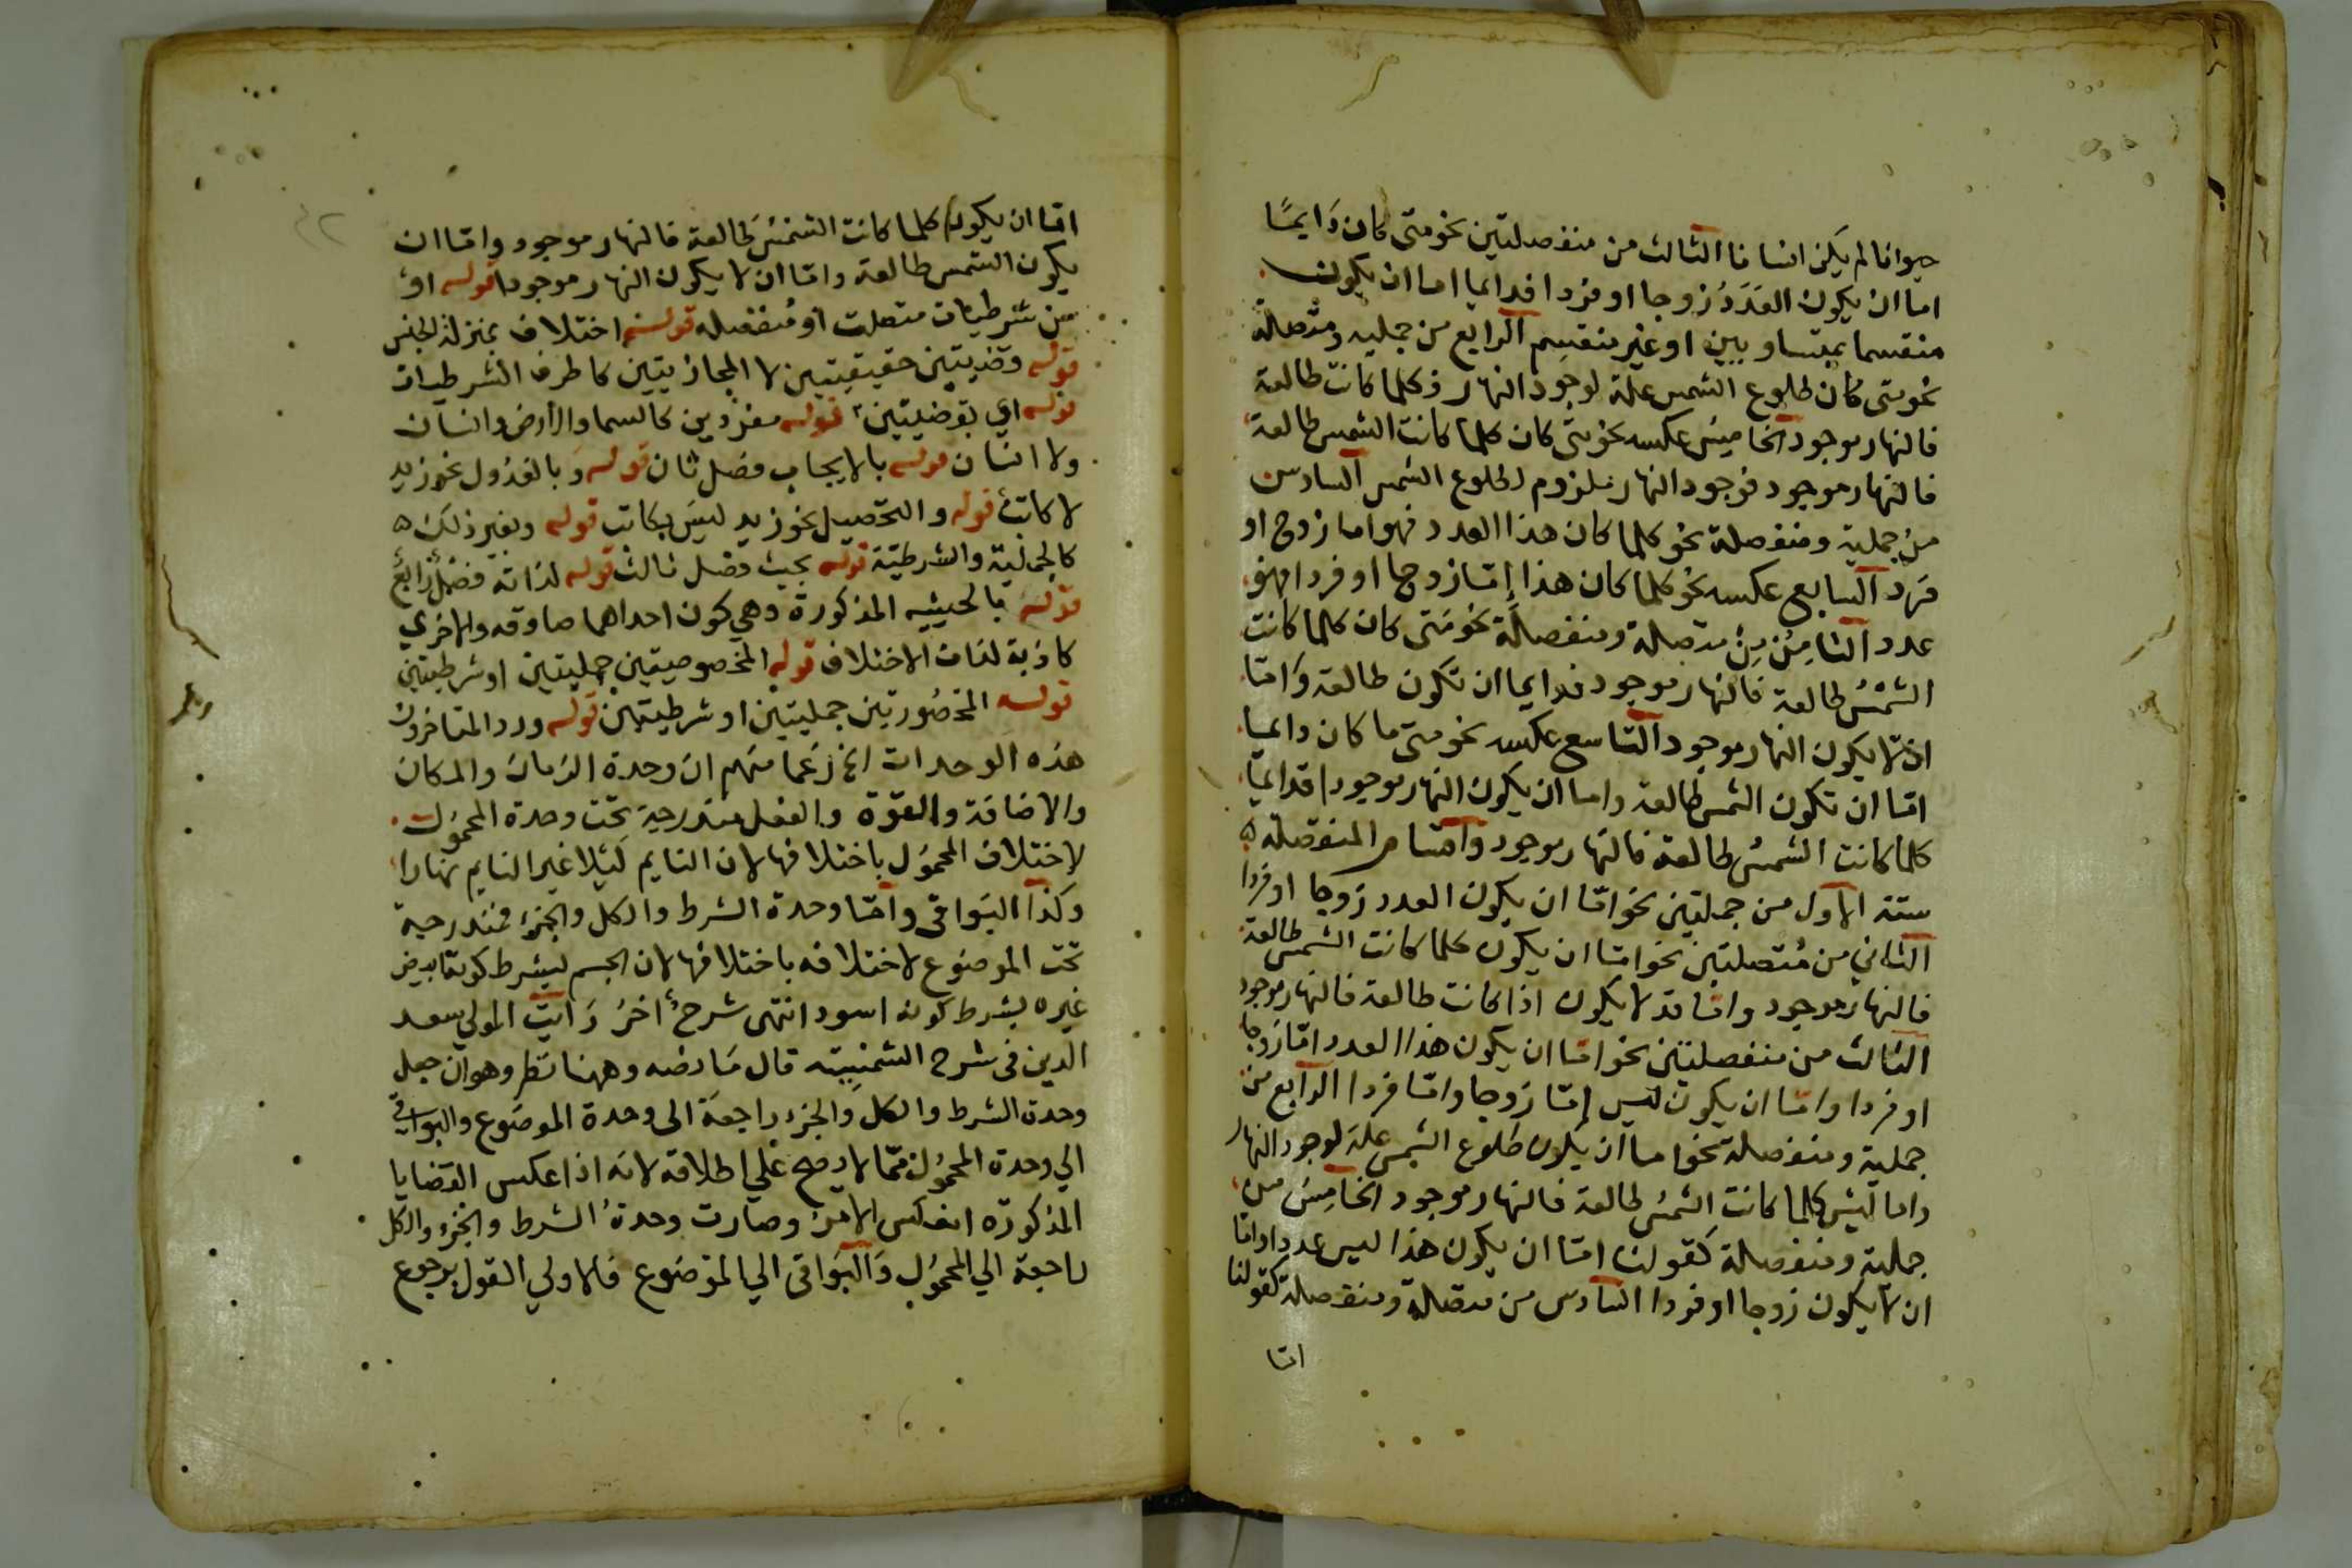 حيوانا لم يكن انسانا الثالث من منفصلتين نحو متى كان دايمًا
اما ان يكون العَدَدُ زوجا او فردا فدايما اما ان يكون
منقسما بمتساويين او غير منقسم الرابع من حمليه ومتصلة
نحو متى كان طلوع الشمس علة لوجود النهار فكلما كانت طالعة
فالنهار موجود الخامس عكسه نحو متى كان كلما كانت الشمس طالعة
فالنهار موجود فوجود النهار ملزوم لطلوع الشمس السادس
من حملية ومنفصلة نحو كلما كان هذا العدد فهو اما زوج او
فرد السابع عكسه نحو كلما كان هذا إمّا زوجا او فردا فهو
عدد الثامِن مِن متصلة ومنفصلة نحو متى كان كلما كانت
الشمْسُ طالعة فالنهار موجود فدايما ان تكون طالعة وَامّا
ان لا يكون النهار موجود التاسع عكسه نحو متى ما كان دايما
امّا ان تكون الشمس طالعة واما ان يكون النهار موجودا فدايمًا
كلما كانت الشمسُ طالعة فالنهار موجود وامّا المنفصلة ه
ستة الاول من حمليتين نحو امّا ان يكون العدد زوجا او فردا
الثاني من مُتصلتين نحو امّا ان يكون كلما كانت الشمس طالعة
فالنهار موجود وامّا قد لا يكون اذا كانت طالعة فالنهار موجود
الثالث من منفصلتين نحو امّا ان يكون هذا العدد امّا زوجا
او فردا وامّا ان يكون ليس إمّا زوجا وامّا فردا الرابع من
حملية ومنفصلة نحو اما ان يكون طلوع الشمس علة لوجود النهار
واما ليس كلما كانت الشمسُ طالعة فالنهار موجود الخامِسُ من
حملية ومنفصلة كقولنا امّا ان يكون هذا ليس عددا وامّا
ان لا يكون زوجا او فردا السادس من متصلة ومنفصلة كقولنا
امّا
امّا ان يكون كلما كانت الشمسُ طالعة فالنهار موجود وامّا ان
يكون الشمس طالعة وامّا ان لا يكون النهار موجودا قوله او
من شرطيات متصلت او مُنفصله قوله اختلاف بمنزلة الجنس
قوله وقضيتين حقيقيتين لا المجازيتين كاطراف الشرطيات
قوله اي بقوضيتين قوله مفردين كالسما والارض وانسان
ولا انسان قوله بالايجاب فصل ثان قوله وبالعُدُول نحو زيد
لا كاتب قوله والتحصيل نحو زيد ليسَ بكاتب قوله وبغير ذلك ه
كالحملية والشرطيّة قوله بحيث فصل ثالث قوله لذاته فصلٌ رابعٌ
قوله بالحيثيه المذكورة وهي كون احداهما صادقه والاخري
كاذبة لذات الاختلاف قوله المخصوصيتين حمليتين او شرطيتين
قوله المحصُورتين حمليتين او شرطيتين قوله ورد المتاخرون
هذه الوحدات الخ زعما منهم ان وحدة الزمان والمكان
والاضافة والقوّة والفعل مندرجة تحت وحدة المحمول
لاختلاف المحمُول باختلافها لان النايم لَيْلا غير النايم نهارا
وكذا البَواقي وامّا وحدة الشرط والكل والجزء فمندرجة
تحت الموضوع لاختلافه باختلافها لان الجسم بشرط كونه ابيض
غيره بشرط كونه اسود انتهى شرح أخر رَايت المولي سعد
الدين فى شرح الشمسِيّه قال مَا رضه وههنا نظر وهو ان جعل
وحدة الشرط والكل والجزء راجعَة الى وحدة الموضوع والبواقي
الي وحدة المحمُول ممّا لا يصح علي اطلاقه لانه اذا عكس القضايا
المذكورة انعكس الامر وصارت وحدةُ الشرط والجزء والكل
راجعة الي المحمُول وَالبَواقى الي الموضوع فالاولي القول برجوع